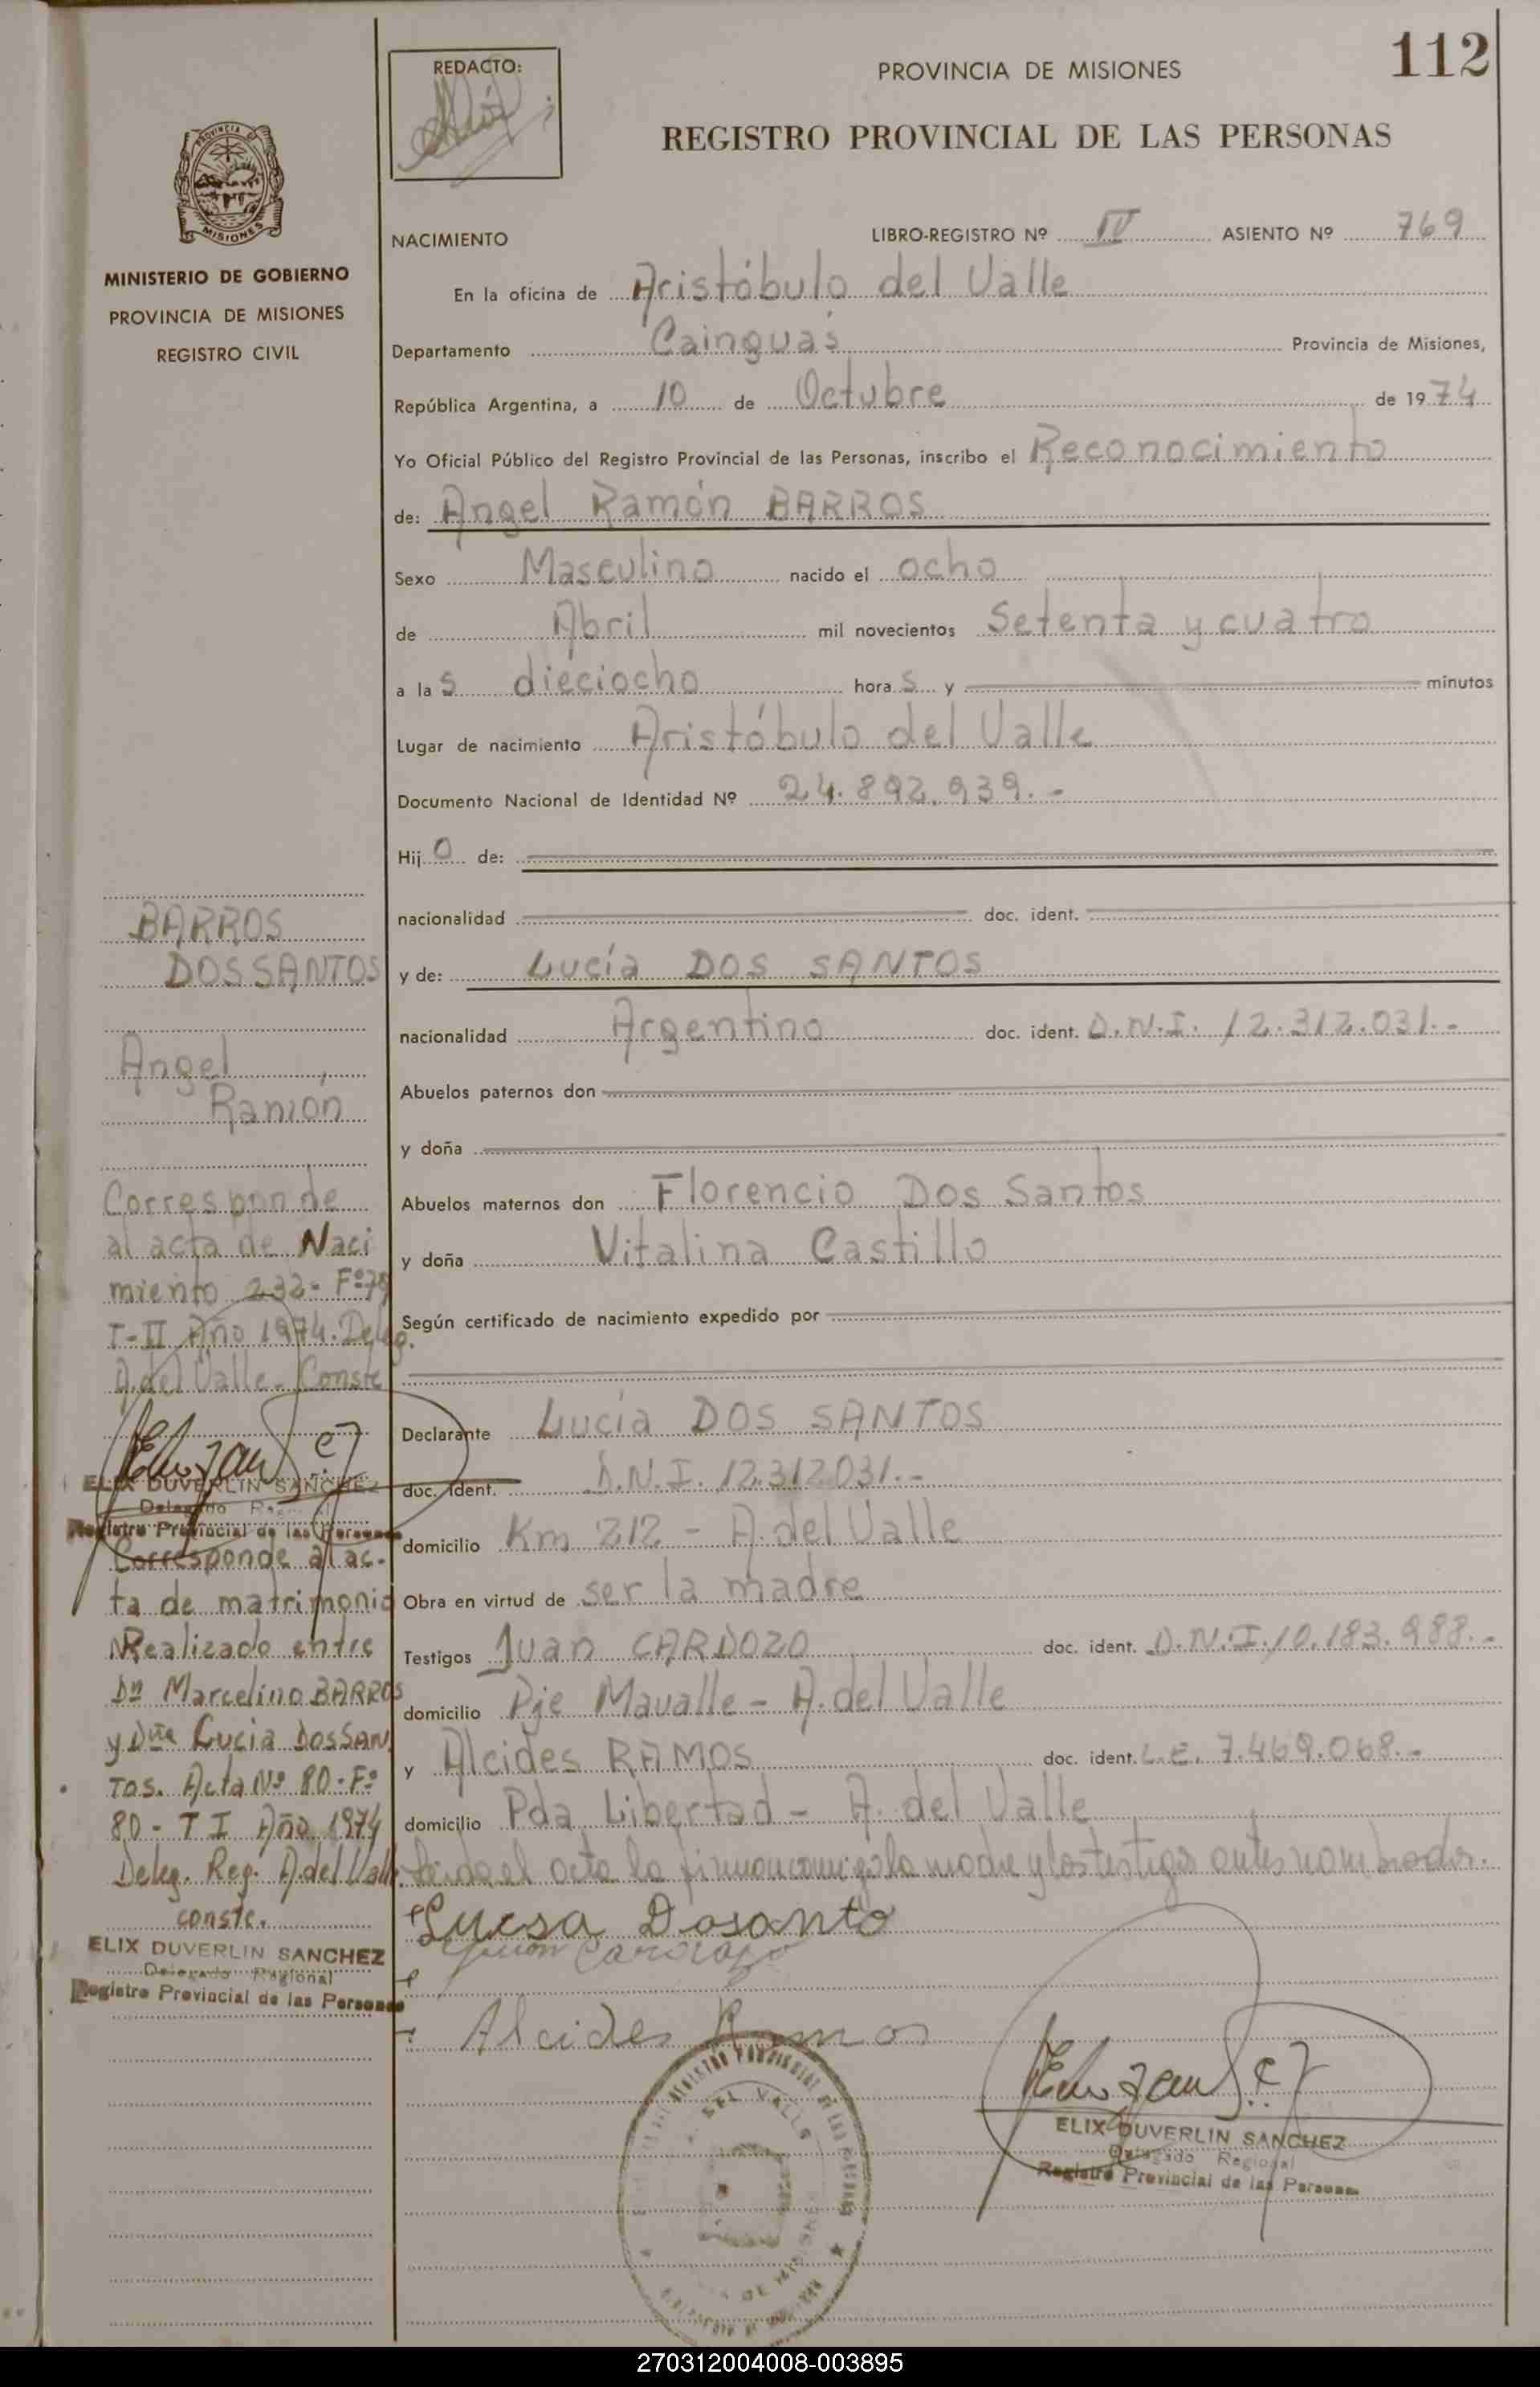 112
REDACTO:
PROVINCIA DE MISIONES
REGISTRO PROVINCIAL DE LAS PERSONAS
PROVINCIA
MISIONES
MINISTERIO DE GOBIERNO
PROVINCIA DE MISIONES
REGISTRO CIVIL
NACIMIENTO LIBRO-REGISTRO Nº IV ASIENTO Nº 769
En la oficina de Aristóbulo del Valle
Departamento Cainguás Provincia de Misiones,
República Argentina, a 10 de Octubre de 1974
Yo Oficial Público del Registro Provincial de las Personas, inscribo el Reconocimiento
de: Angel Ramón BARROS
Sexo Masculino nacido el ocho
de Abril mil novecientos Setenta y cuatro
a las dieciocho horas y minutos
Lugar de nacimiento Aristóbulo del Valle
Documento Nacional de Identidad Nº 24.892.939.-
Hijo de:
nacionalidad doc. ident.
y de: Lucía DOS SANTOS
nacionalidad Argentina doc. ident. D.N.I. 12.312.031.-
Abuelos paternos don
y doña
Abuelos maternos don Florencio Dos Santos
y doña Vitalina Castillo
Según certificado de nacimiento expedido por
Declarante Lucía DOS SANTOS
doc. ident. D.N.I. 12.312.031.-
domicilio Km 212 - A. del Valle
Obra en virtud de ser la madre
Testigos Juan CARDOZO doc. ident. D.N.I. 10.183.988.-
domicilio Pje Mavalle - A. del Valle
y Alcides RAMOS doc. ident. L.E. 7.469.068.-
domicilio Pda Libertad - A. del Valle
Leida el acta la firman conmigo la madre y los testigos antes nombrados.
Lucsa Dosanto
Juan Cardozo
Alcides Ramos
ELIX DUVERLIN SANCHEZ
Delegado Regional
Registro Provincial de las Personas
BARROS
DOS SANTOS
Angel
Ramón
Corresponde
al acta de Naci
miento 232- Fº 79
T-II Año 1974. Deleg.
A. del Valle - Conste
ELIX DUVERLIN SANCHEZ
Delegado Regional
Registro Provincial de las Personas
Corresponde al ac-
ta de matrimonio
Realizado entre
Dn Marcelino BARROS
y Dña Lucia DOSSAN
TOS. Acta Nº 80 - Fº
80 - T I Año 1974
Deleg. Reg. A. del Valle
conste.
ELIX DUVERLIN SANCHEZ
Delegado Regional
Registro Provincial de las Personas
270312004008-003895